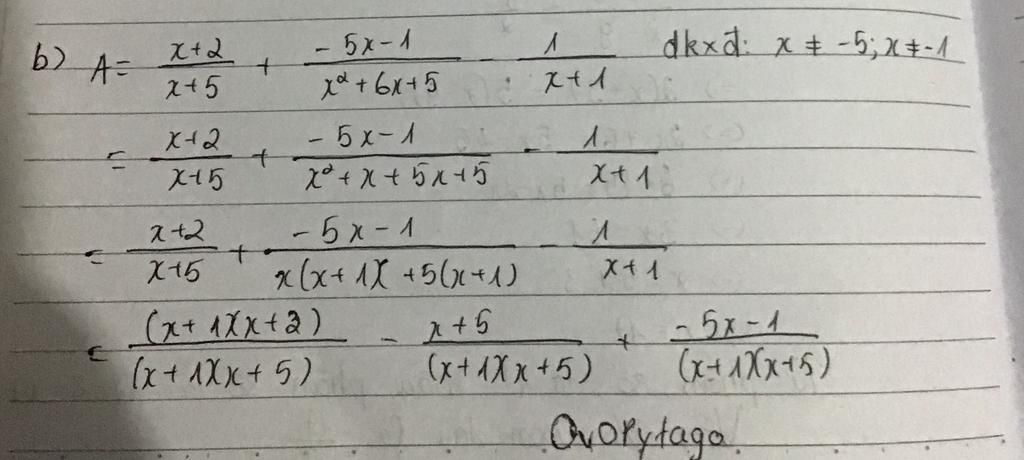 b) A = \frac{x+2}{x+5} + \frac{-5x-1}{x²+6x+5} - \frac{1}{x+1} dkxđ: x ≠ -5; x ≠ -1
= \frac{x+2}{x+5} + \frac{-5x-1}{x²+x+5x+5} - \frac{1}{x+1}
= \frac{x+2}{x+5} + \frac{-5x-1}{x(x+1)+5(x+1)} - \frac{1}{x+1}
= \frac{(x+1)(x+2)}{(x+1)(x+5)} - \frac{x+5}{(x+1)(x+5)} + \frac{-5x-1}{(x+1)(x+5)}
QvOPytago